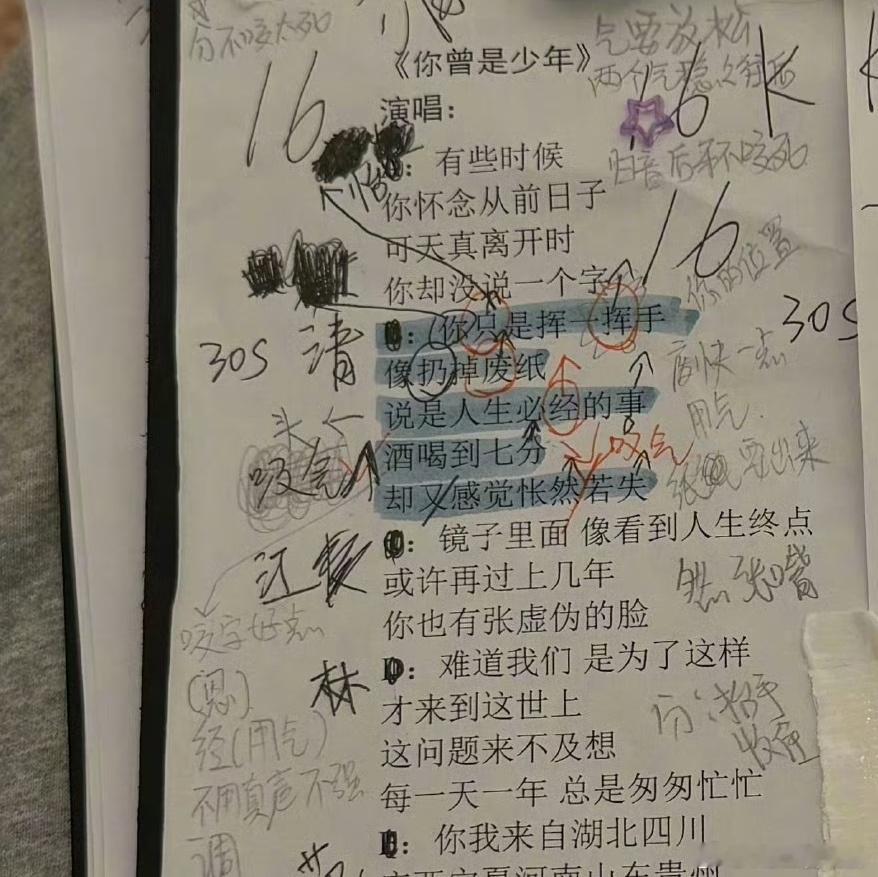 气要放松
分不咬太死
《你曾是少年》
两个气稳点往后
16
16K
演唱：
归音后来不咬死
怡：有些时候
你怀念从前日子
可天真离开时
16
你的位置
你却没说一个字
（你只是挥一挥手
30S
30S 清
像扔掉废纸
用气
说是人生必经的事
头←
酒喝到七分
吸气
吸气
要出来
却又感觉怅然若失
：镜子里面 像看到人生终点
江
或许再过上几年
然 张嘴
你也有张虚伪的脸
咬字好点
：难道我们 是为了这样
林
才来到这世上
这问题来不及想
经（用气）
每一天一年 总是匆匆忙忙
不用真声不强调
：你我来自湖北四川
广西宁夏河南山东贵州